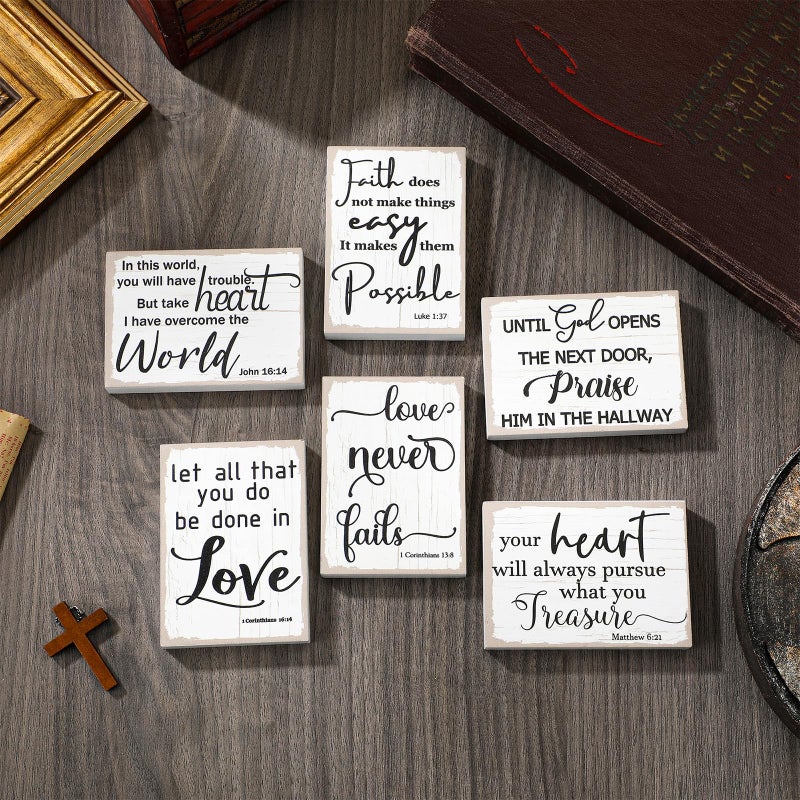 Faith does
not make things
easy
It makes them
Possible
Luke 1:37
In this world,
you will have trouble.
But take heart
I have overcome the
World
John 16:14
UNTIL God OPENS
THE NEXT DOOR,
Praise
HIM IN THE HALLWAY
love
never
fails
1 Corinthians 13:8
let all that
you do
be done in
Love
1 Corinthians 16:14
your heart
will always pursue
what you
Treasure
Matthew 6:21